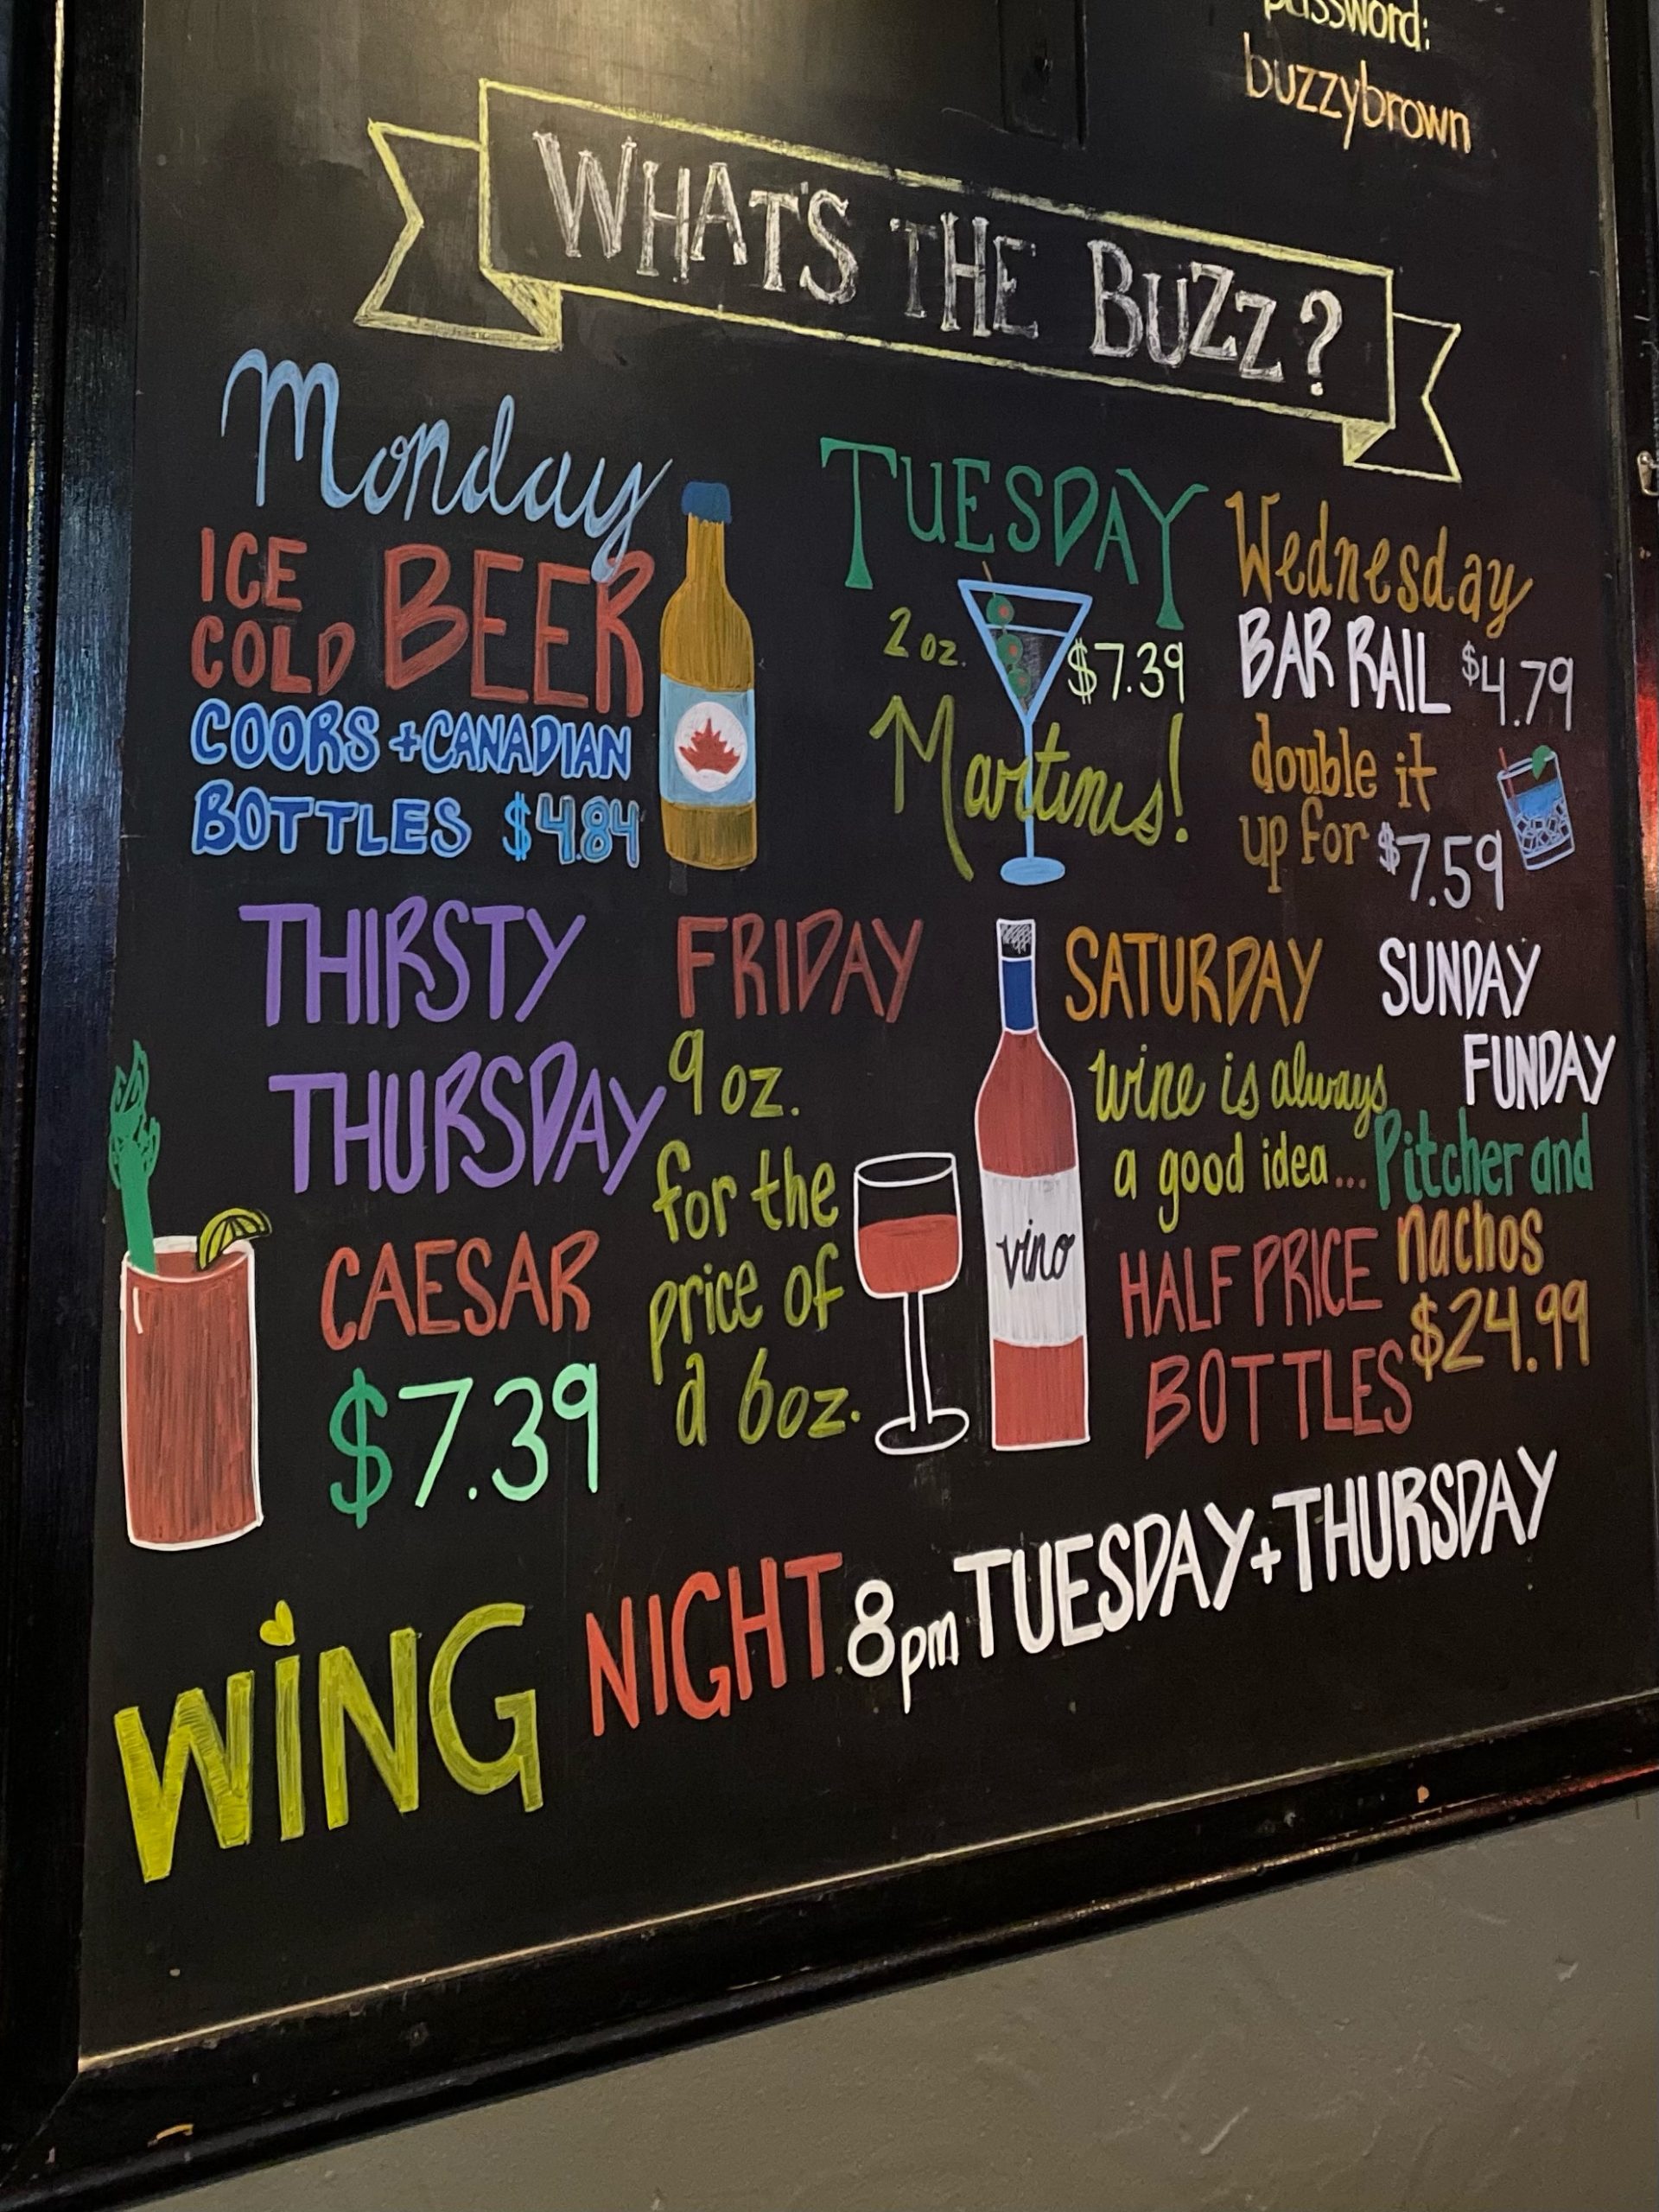 password:
buzzybrown
WHAT'S THE BUZZ?
Monday
ICE COLD BEER
COORS + CANADIAN
BOTTLES $4.84
TUESDAY
2 oz. $7.39
Martinis!
Wednesday
BAR RAIL $4.79
double it
up for $7.59
THIRSTY
THURSDAY
CAESAR
$7.39
FRIDAY
9 oz.
for the
price of
a 6oz.
vino
SATURDAY
wine is always
a good idea...
HALF PRICE
BOTTLES
SUNDAY
FUNDAY
Pitcher and
nachos
$24.99
WiNG NIGHT 8pm TUESDAY + THURSDAY